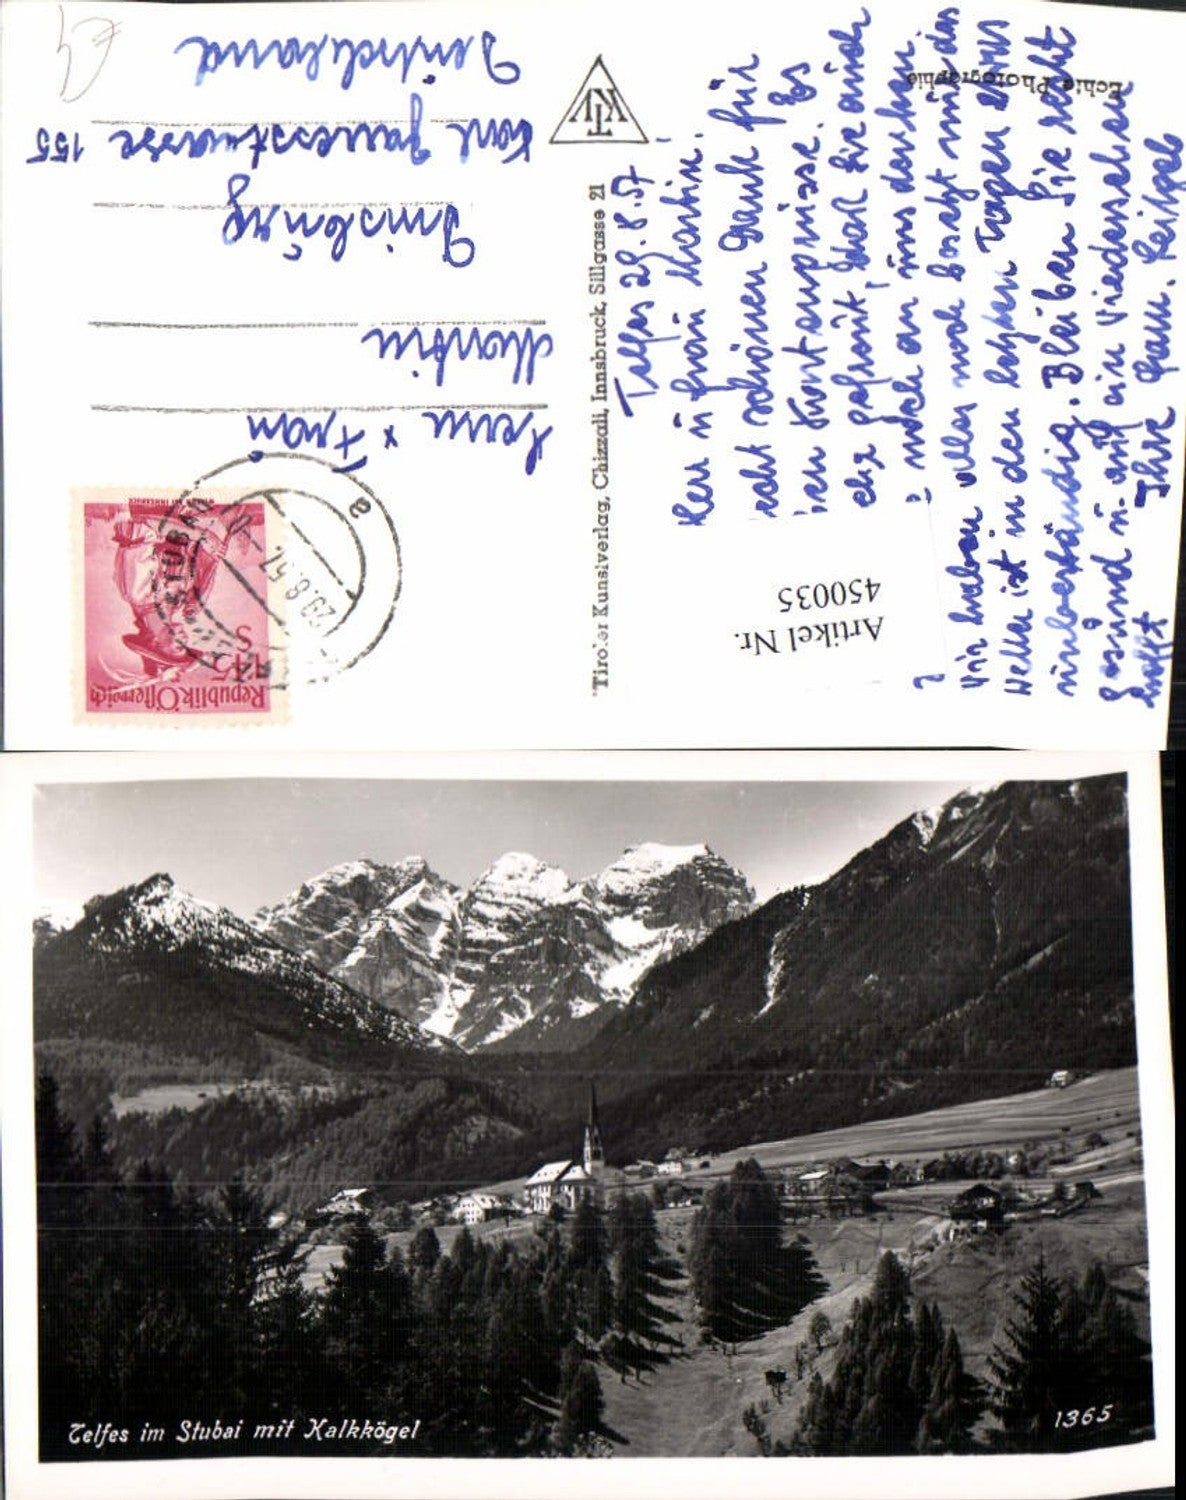 Telfes 29.8.57
Herr u Frau Martin.
recht schönen Dank für
Ihren Kartengruss. Es
gefreut, das Sie auch
noch an uns denken.
Wir haben alles noch besetzt nur das
Wetter ist in den letzten Tagen etwas
unbeständig. Bleiben Sie recht
Gesund u. auf ein Wiedersehen
hofft Ihre Fam.
Echte Photographie
Artikel Nr.
450035
TKV
Tiroler Kunstverlag, Chizzali, Innsbruck, Sillgasse 21
Herrn x Frau
Martin
Duisburg
Karl Jarresstrasse 155
Deutschland
Republik Österreich
1.45 S
STUBAI
29.8.57
a
Telfes im Stubai mit Kalkkögel
1365